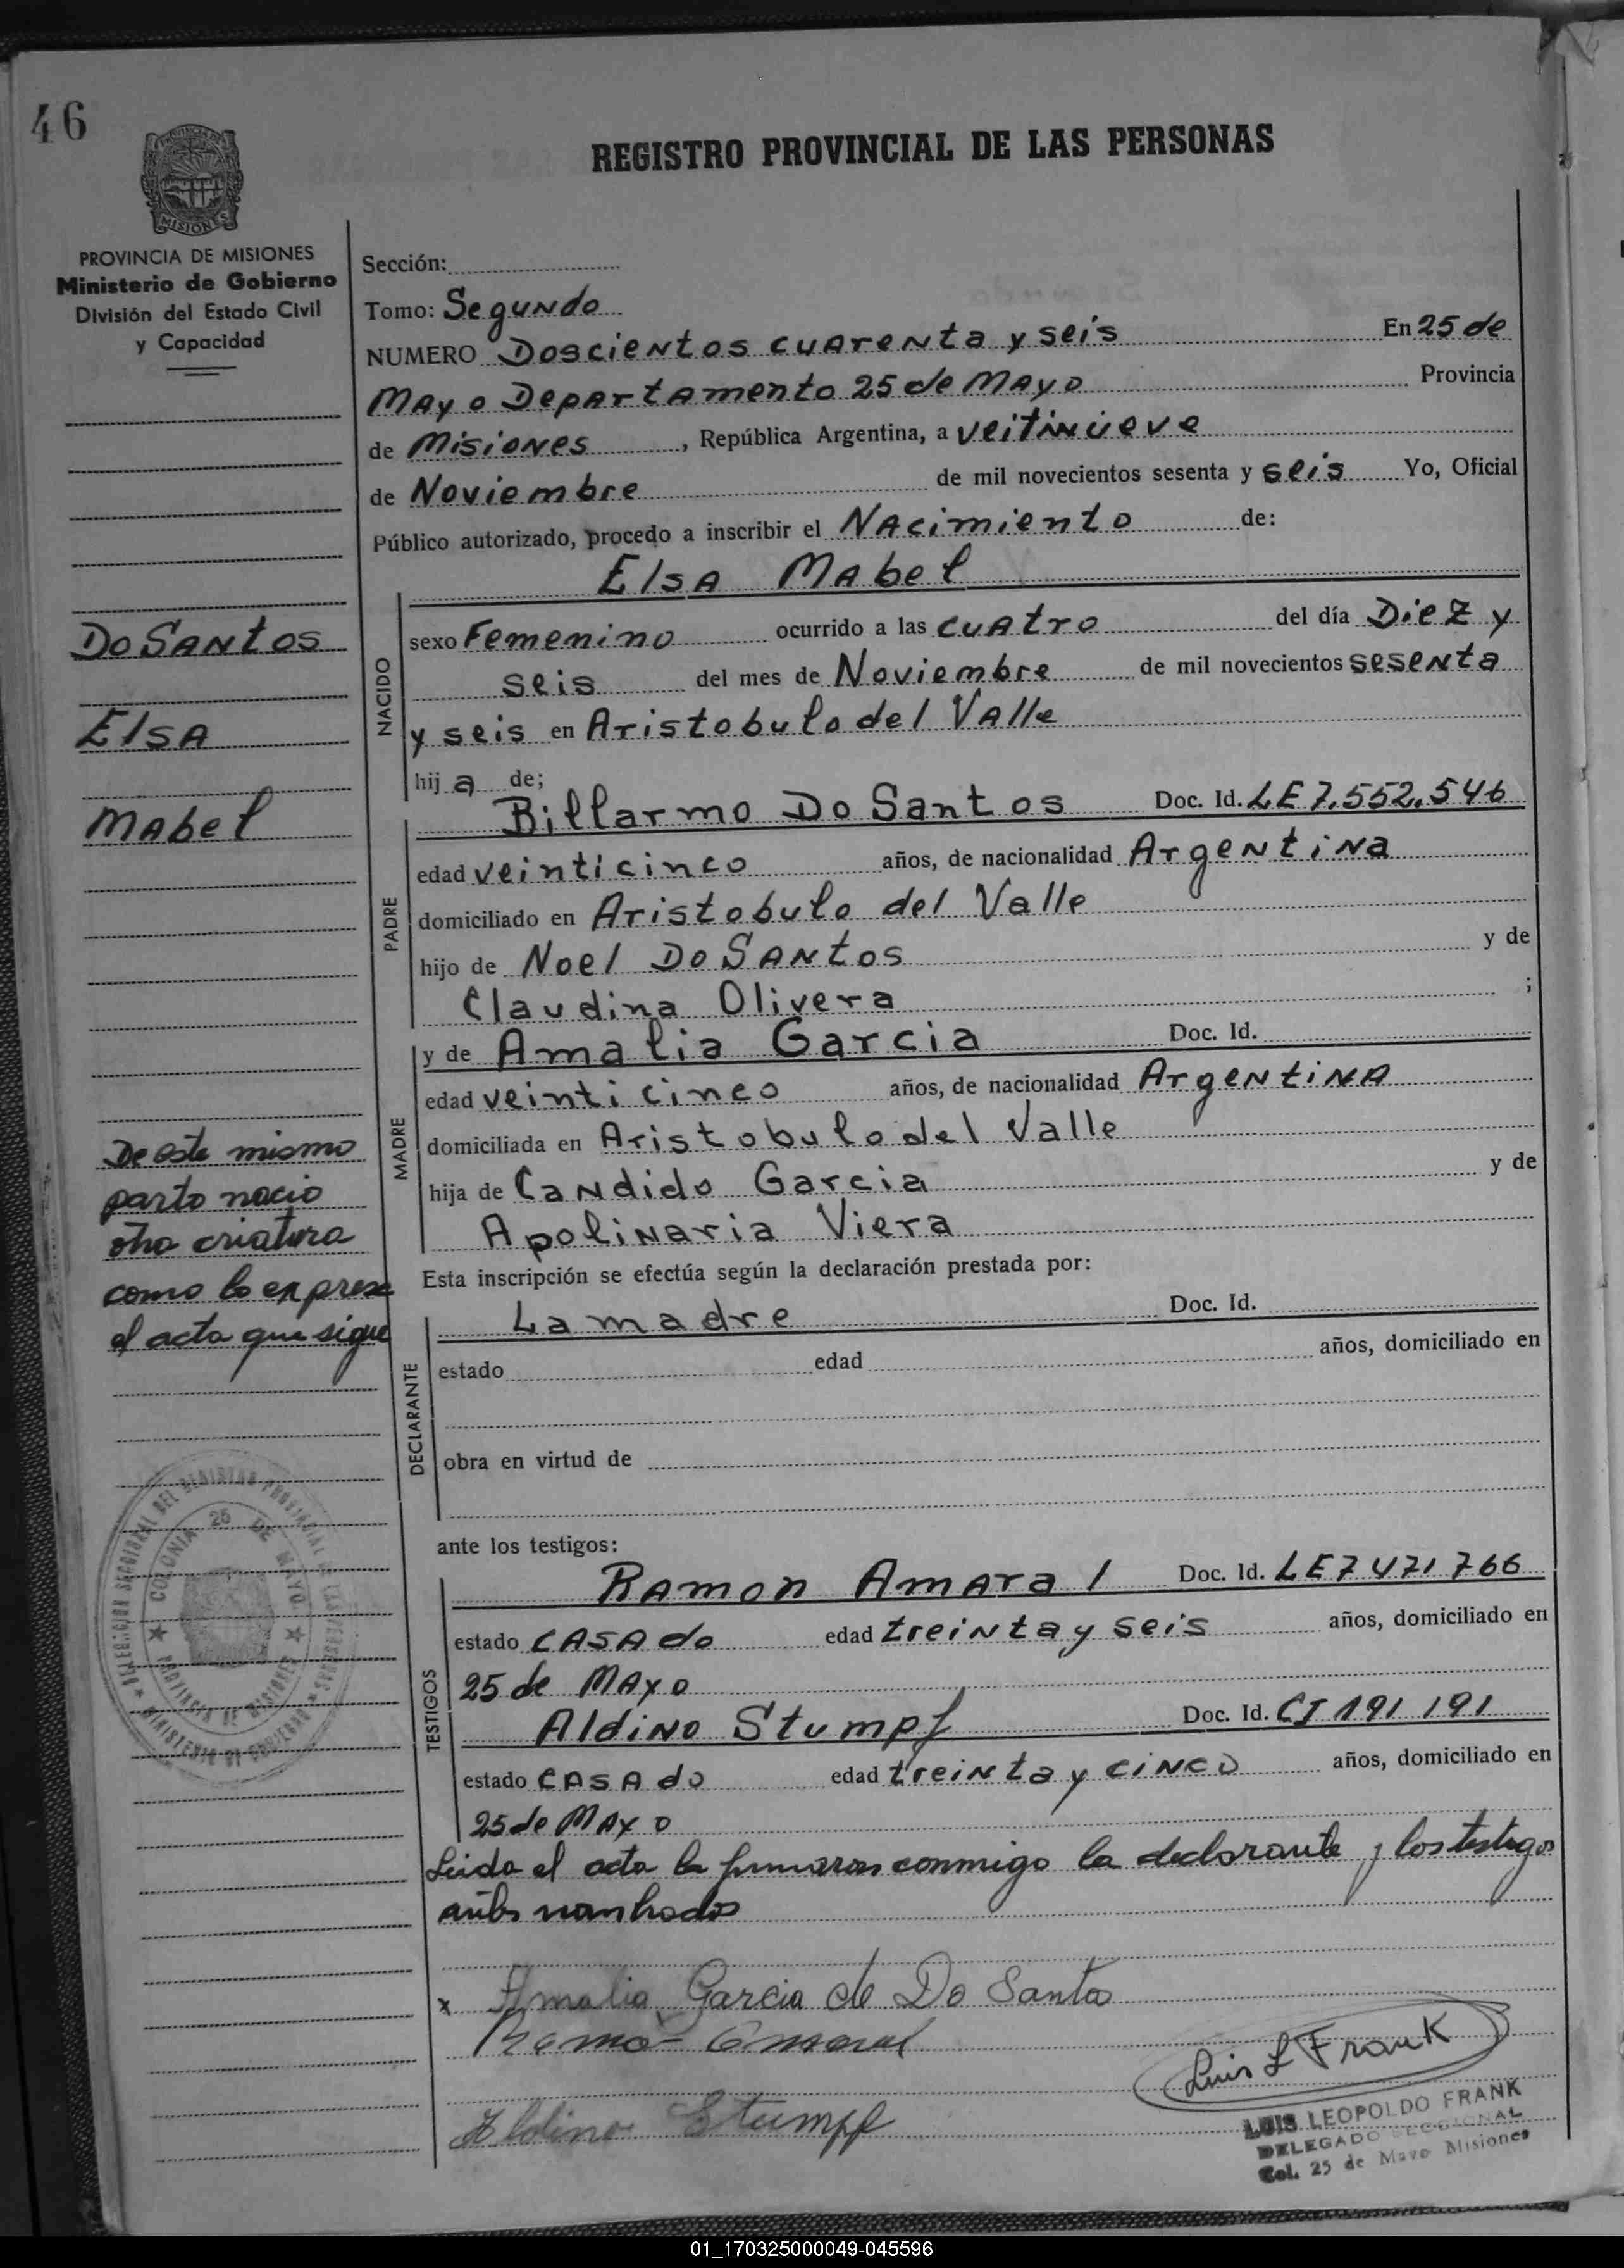 46
REGISTRO PROVINCIAL DE LAS PERSONAS
MISIONES
PROVINCIA DE MISIONES
Ministerio de Gobierno
División del Estado Civil
y Capacidad
Do Santos
Elsa
Mabel
De este mismo
parto nacio
otra criatura
como lo expresa
el acta que sigue
Sección:
Tomo: Segundo
NUMERO Doscientos cuarenta y seis En 25 de
Mayo Departamento 25 de Mayo Provincia
de Misiones, República Argentina, a veitinueve
de Noviembre de mil novecientos sesenta y seis Yo, Oficial
Público autorizado, procedo a inscribir el Nacimiento de:
Elsa Mabel
NACIDO
sexo Femenino ocurrido a las cuatro del día Diez y
seis del mes de Noviembre de mil novecientos sesenta
y seis en Aristobulo del Valle
hija de;
PADRE
Billarmo Do Santos Doc. Id. LE 7.552.546
edad veinticinco años, de nacionalidad Argentina
domiciliado en Aristobulo del Valle
hijo de Noel Do Santos y de
Claudina Olivera ;
MADRE
y de Amalia Garcia Doc. Id.
edad veinticinco años, de nacionalidad Argentina
domiciliada en Aristobulo del Valle
hija de Candido Garcia y de
Apolinaria Viera
Esta inscripción se efectúa según la declaración prestada por:
DECLARANTE
La madre Doc. Id.
estado edad años, domiciliado en
obra en virtud de
ante los testigos:
TESTIGOS
Ramon Amaral Doc. Id. LE 7471766
estado casado edad treinta y seis años, domiciliado en
25 de Mayo
Aldino Stumpf Doc. Id. CI 191191
estado casado edad treinta y cinco años, domiciliado en
25 de Mayo
Leida el acta la firmaron conmigo la declarante y los testigos
antes nombrados
x Amalia Garcia de Do Santos
Ramon Amaral
Aldino Stumpf
Luis L Frank
LUIS LEOPOLDO FRANK
DELEGADO SECCIONAL
Col. 25 de Mayo Misiones
DELEGACION SECCIONAL DEL REGISTRO PROVINCIAL DE LAS PERSONAS
MINISTERIO DE GOBIERNO
COLONIA 25 DE MAYO
PROVINCIA DE MISIONES
01_170325000049-045596